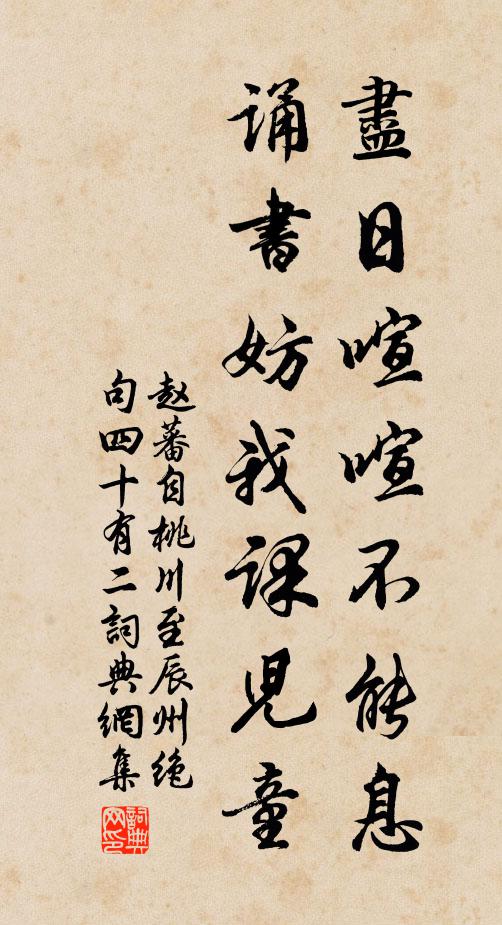 盡日喧喧不能息
誦書妨我課兒童
赵蕃自桃川至辰州绝
句四十有二詞典網集
詞典
网印